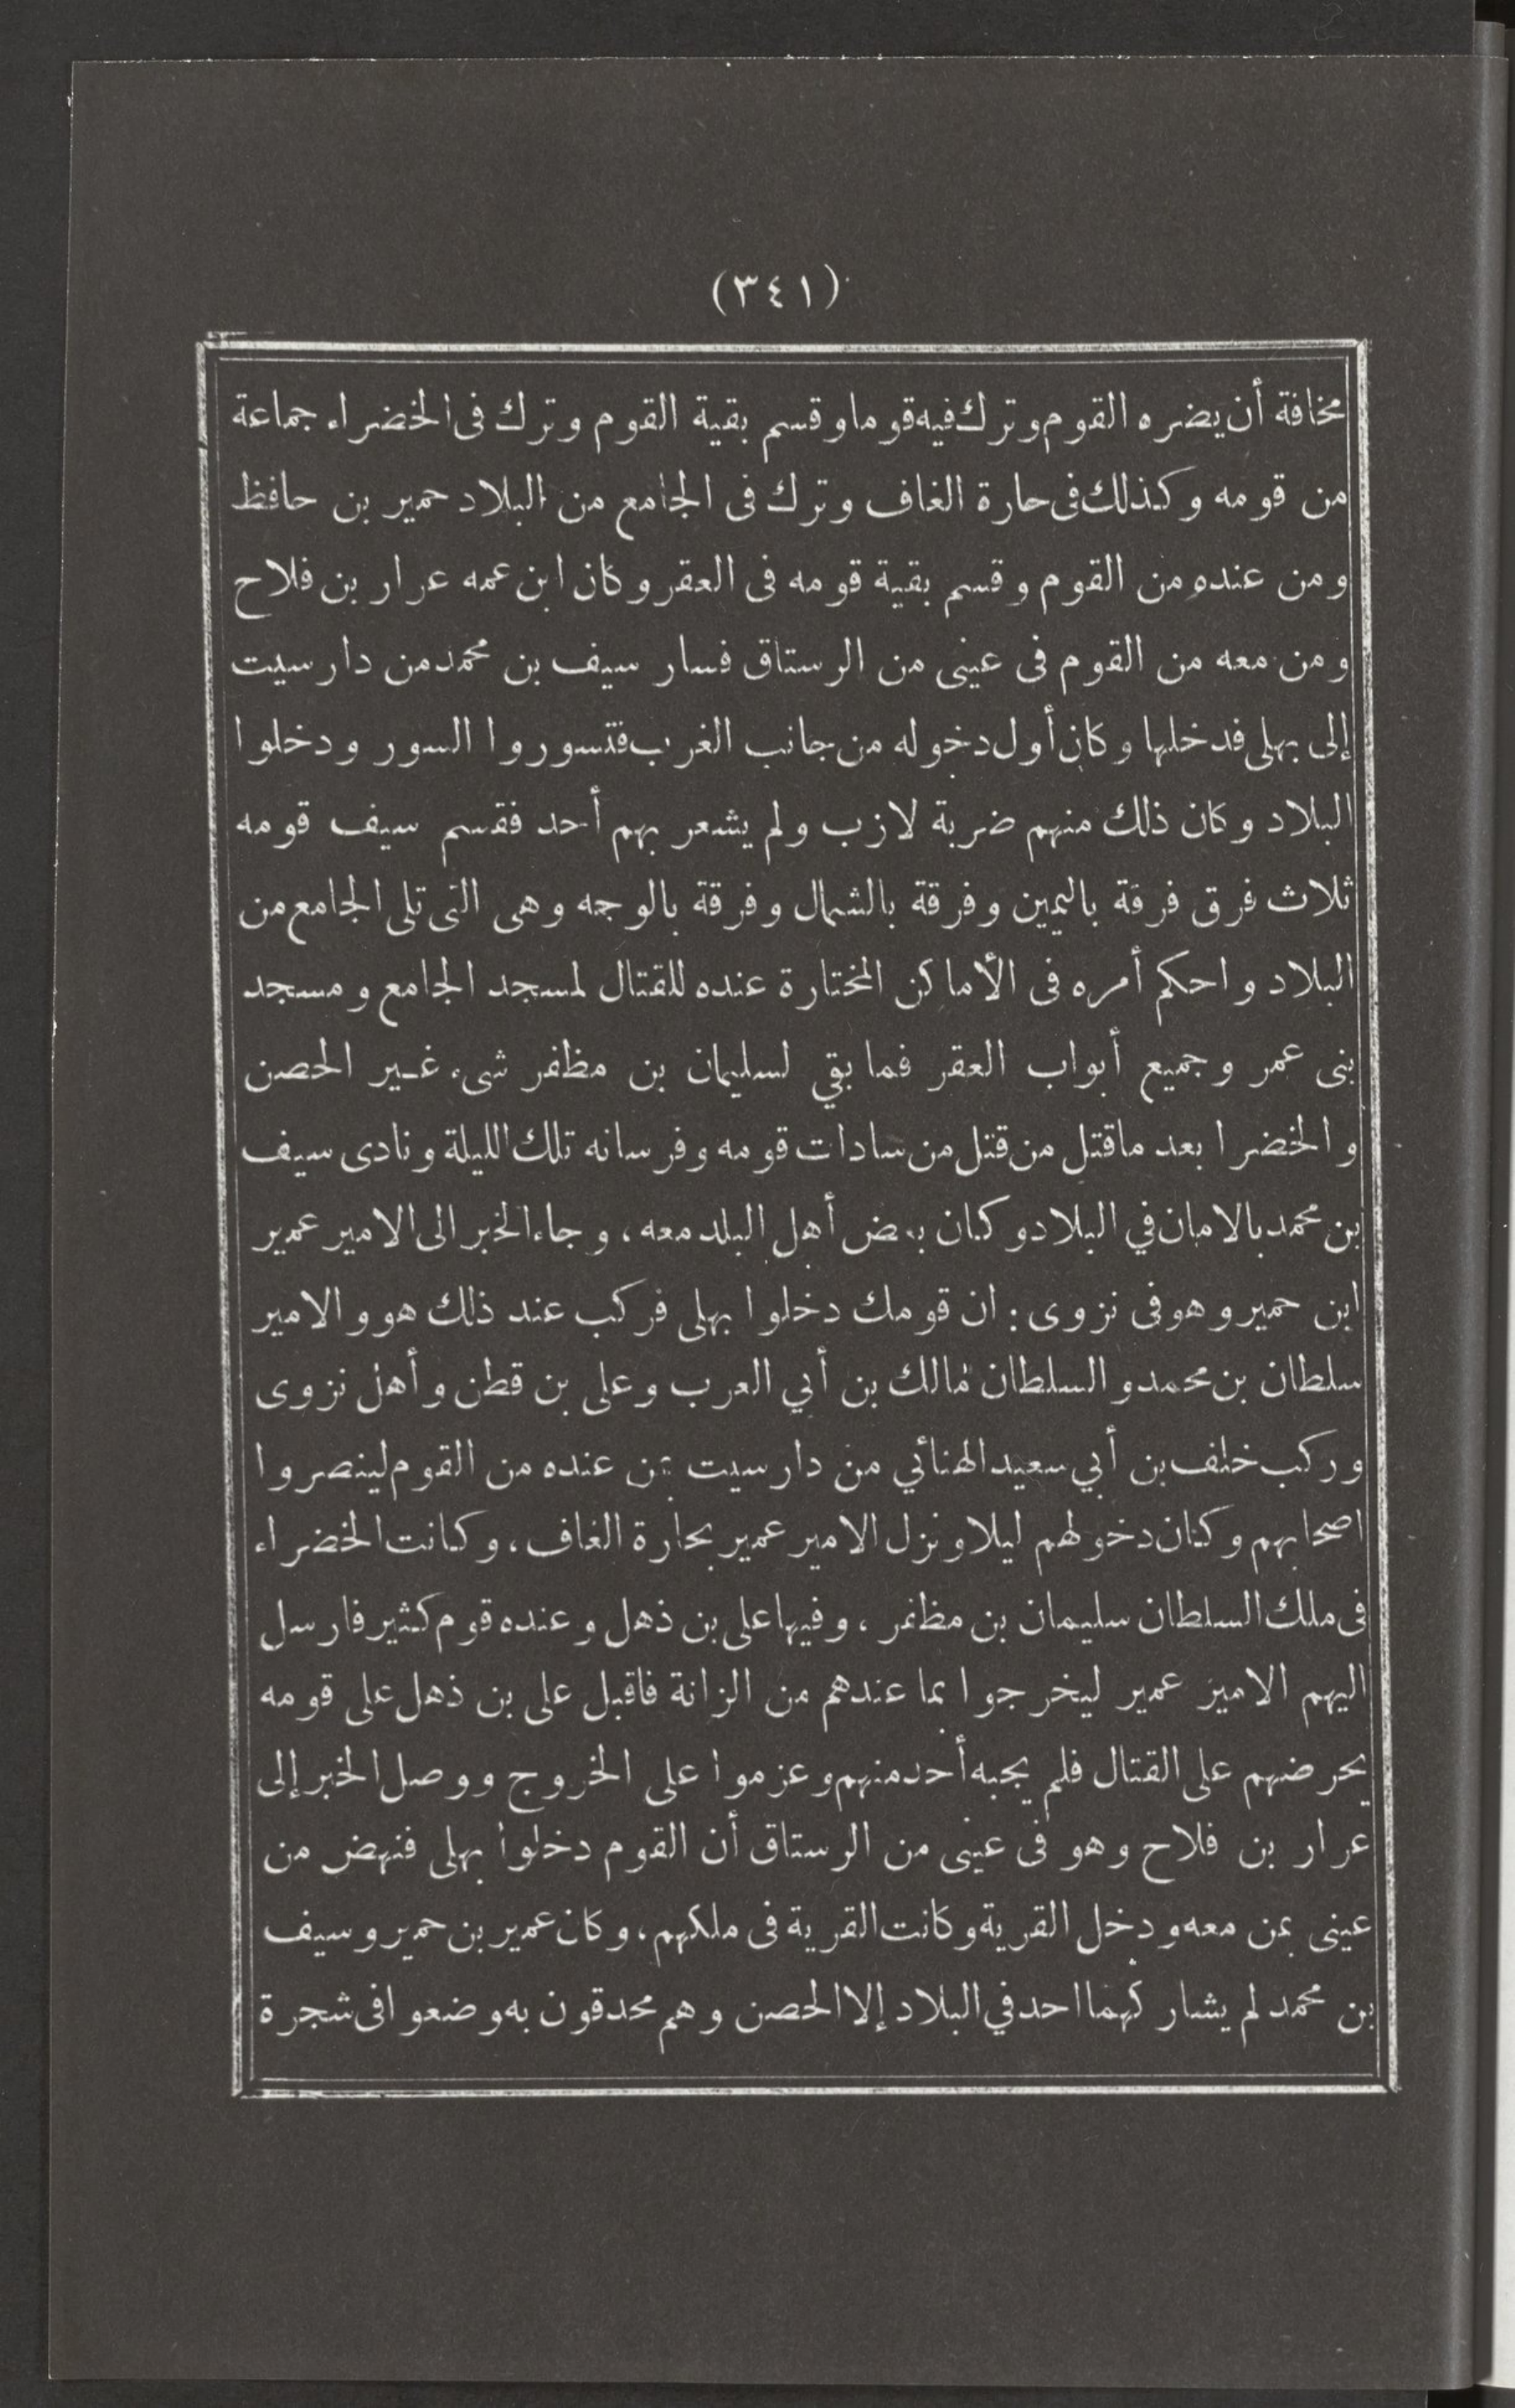 (٣٤١)
مخافة أن يضره القوم وترك فيه قوما وقسم بقية القوم وترك فى الخضراء جماعة
من قومه وكذلك فى حارة الغاف وترك فى الجامع من البلاد حمير بن حافظ
ومن عنده من القوم وقسم بقية قومه فى العقر وكان ابن عمه عرار بن فلاح
ومن معه من القوم فى عينى من الرستاق فسار سيف بن محمد من دار سيت
إلى بهلى فدخلها وكان أول دخوله من جانب الغرب فتسوروا السور ودخلوا
البلاد وكان ذلك منهم ضربة لازب ولم يشعر بهم أحد فقسم سيف قومه
ثلاث فرق فرقة باليمين وفرقة بالشمال وفرقة بالوجه وهى التى تلى الجامع من
البلاد واحكم أمره فى الأماكن المختارة عنده للقتال لمسجد الجامع ومسجد
بنى عمر وجميع أبواب العقر فما بقي لسليمان بن مظفر شىء غير الحصن
والخضرا بعد ما قتل من قتل من سادات قومه وفرسانه تلك الليلة ونادى سيف
بن محمد بالامان في البلاد وكان بعض أهل البلد معه ، وجاء الخبر الى الامير عمير
ابن حمير وهو فى نزوى : ان قومك دخلوا بهلى فركب عند ذلك هو والامير
سلطان بن محمد والسلطان مالك بن أبي العرب وعلى بن قطن وأهل نزوى
وركب خلف بن أبي سعيد الهنائي من دار سيت بمن عنده من القوم لينصروا
اصحابهم وكان دخولهم ليلا ونزل الامير عمير بحارة الغاف ، وكانت الخضراء
فى ملك السلطان سليمان بن مظفر ، وفيها على بن ذهل وعنده قوم كثير فارسل
اليهم الامير عمير ليخرجوا بما عندهم من الزانة فاقبل على بن ذهل على قومه
يحرضهم على القتال فلم يجبه أحد منهم وعزموا على الخروج ووصل الخبر إلى
عرار بن فلاح وهو فى عينى من الرستاق أن القوم دخلوا بهلى فنهض من
عينى بمن معه ودخل القرية وكانت القرية فى ملكهم ، وكان عمير بن حمير وسيف
بن محمد لم يشاركهما احد في البلاد إلا الحصن وهم محدقون به وضعوا فى شجرة